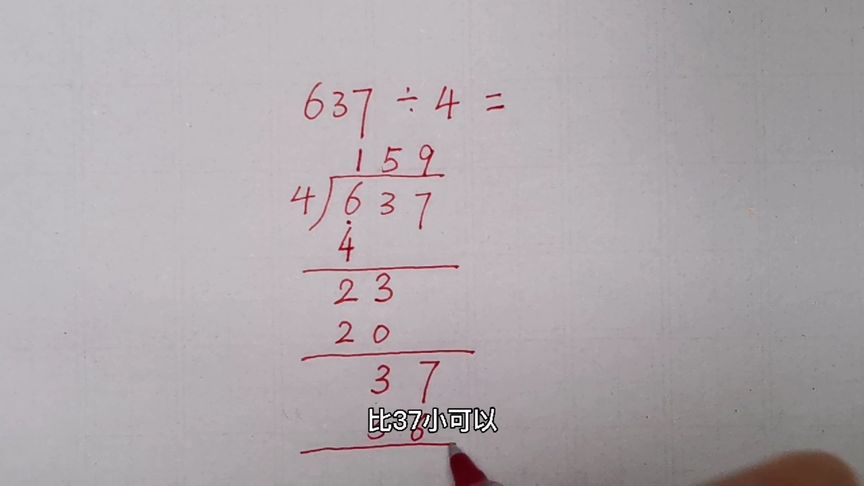 637 ÷ 4 =
159
4)637
4
23
20
37
36
比37小可以